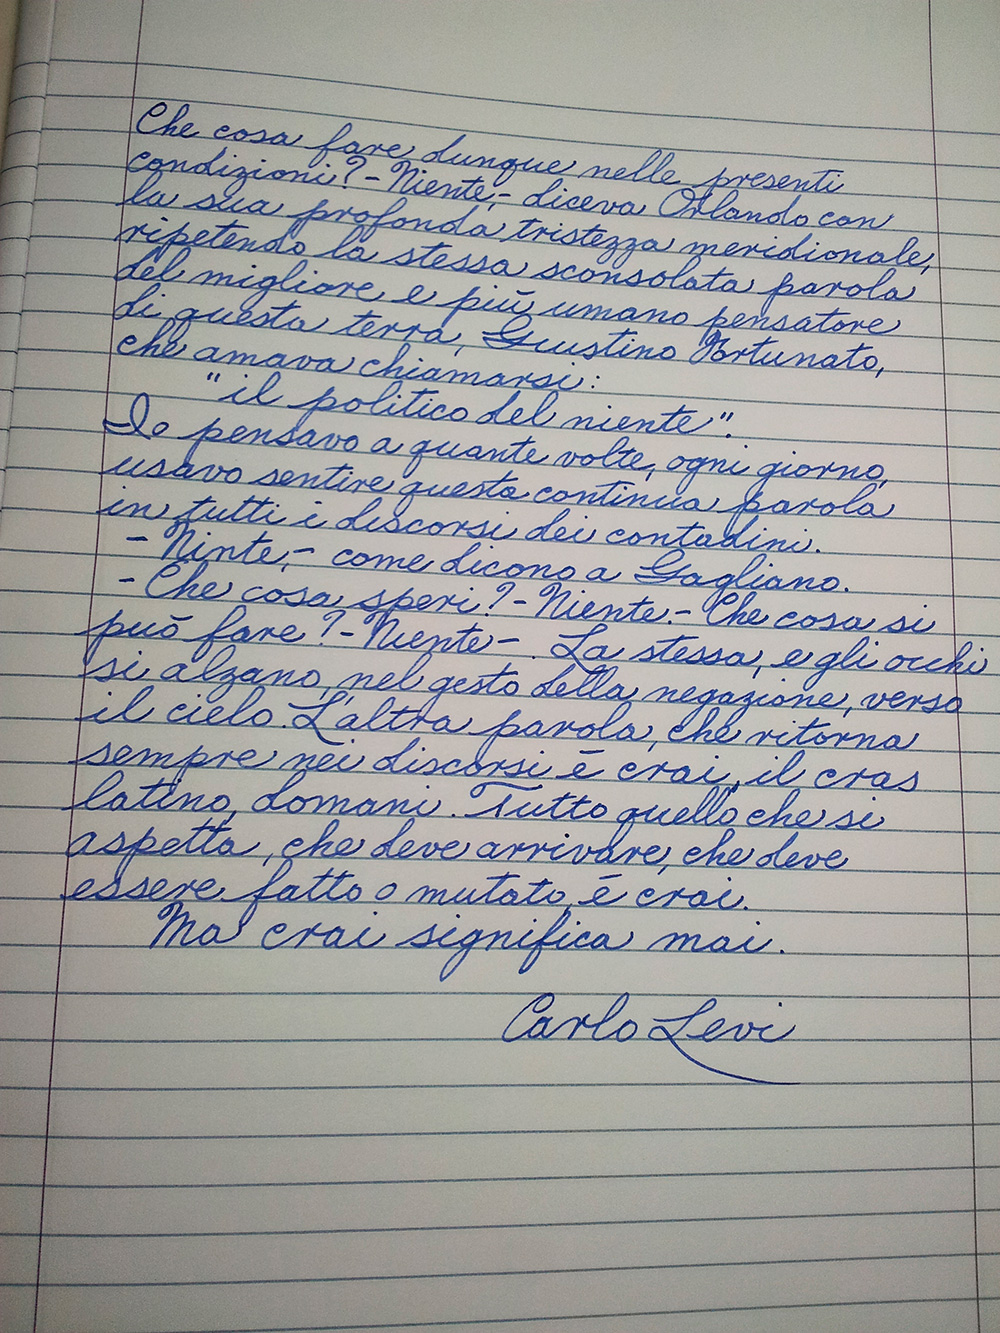 Che cosa fare dunque nelle presenti
condizioni? - Niente, - diceva Orlando con
la sua profonda tristezza meridionale,
ripetendo la stessa sconsolata parola
del migliore e più umano pensatore
di questa terra, Giustino Fortunato,
che amava chiamarsi:
"il politico del niente".
Io pensavo a quante volte, ogni giorno,
usavo sentire questa continua parola
in tutti i discorsi dei contadini.
- Ninte, - come dicono a Gagliano.
- Che cosa speri? - Niente. - Che cosa si
può fare? - Niente - . La stessa, e gli occhi
si alzano, nel gesto della negazione, verso
il cielo. L'altra parola, che ritorna
sempre nei discorsi è crai, il cras
latino, domani. Tutto quello che si
aspetta, che deve arrivare, che deve
essere fatto o mutato, è crai.
Ma crai significa mai.
Carlo Levi